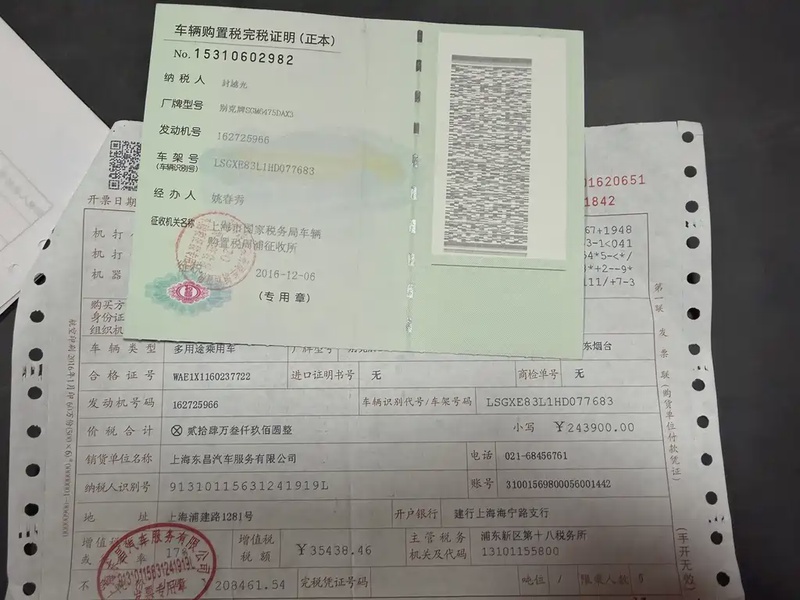 车辆购置税完税证明(正本)
No.15310602982
纳税人
厂牌型号 别克牌SGM6475DAX3
发动机号 162725966
车架号 LSGXE83L1HD077683
(车辆识别号)
经办人 姚春芳
征收机关名称 上海市国家税务局车辆
购置税周浦征收所
2016-12-06
(专用章)
开票日期
01620651
1842
机打
67+1948
机打
3-1<041
机器
4*5-<*/
*+2--9*
111/+7-3
购买方
身份证
组织机
车辆类型 多用途乘用车 厂牌型号 东烟台
合格证号 WAE1X1160237722 进口证明书号 无 商检单号 无
发动机号码 162725966 车辆识别代号/车架号码 LSGXE83L1HD077683
价税合计 ⊗贰拾肆万叁仟玖佰圆整 小写 ¥243900.00
销货单位名称 上海东昌汽车服务有限公司 电话 021-68456761
纳税人识别号 91310115631241919L 账号 31001569800056001442
地址 上海浦建路1281号 开户银行 建行上海海宁路支行
增值税 17% 增值税税额 ¥35438.46 主管税务机关及代码 浦东新区第十八税务所 13101155800
不 208461.54 完税凭证号码 吨位 / 限乘人数
第一联 发票联(购货单位付款凭证)
(手开无效)
昌汽车服务有限公司
91310115631241919L
发票专用章